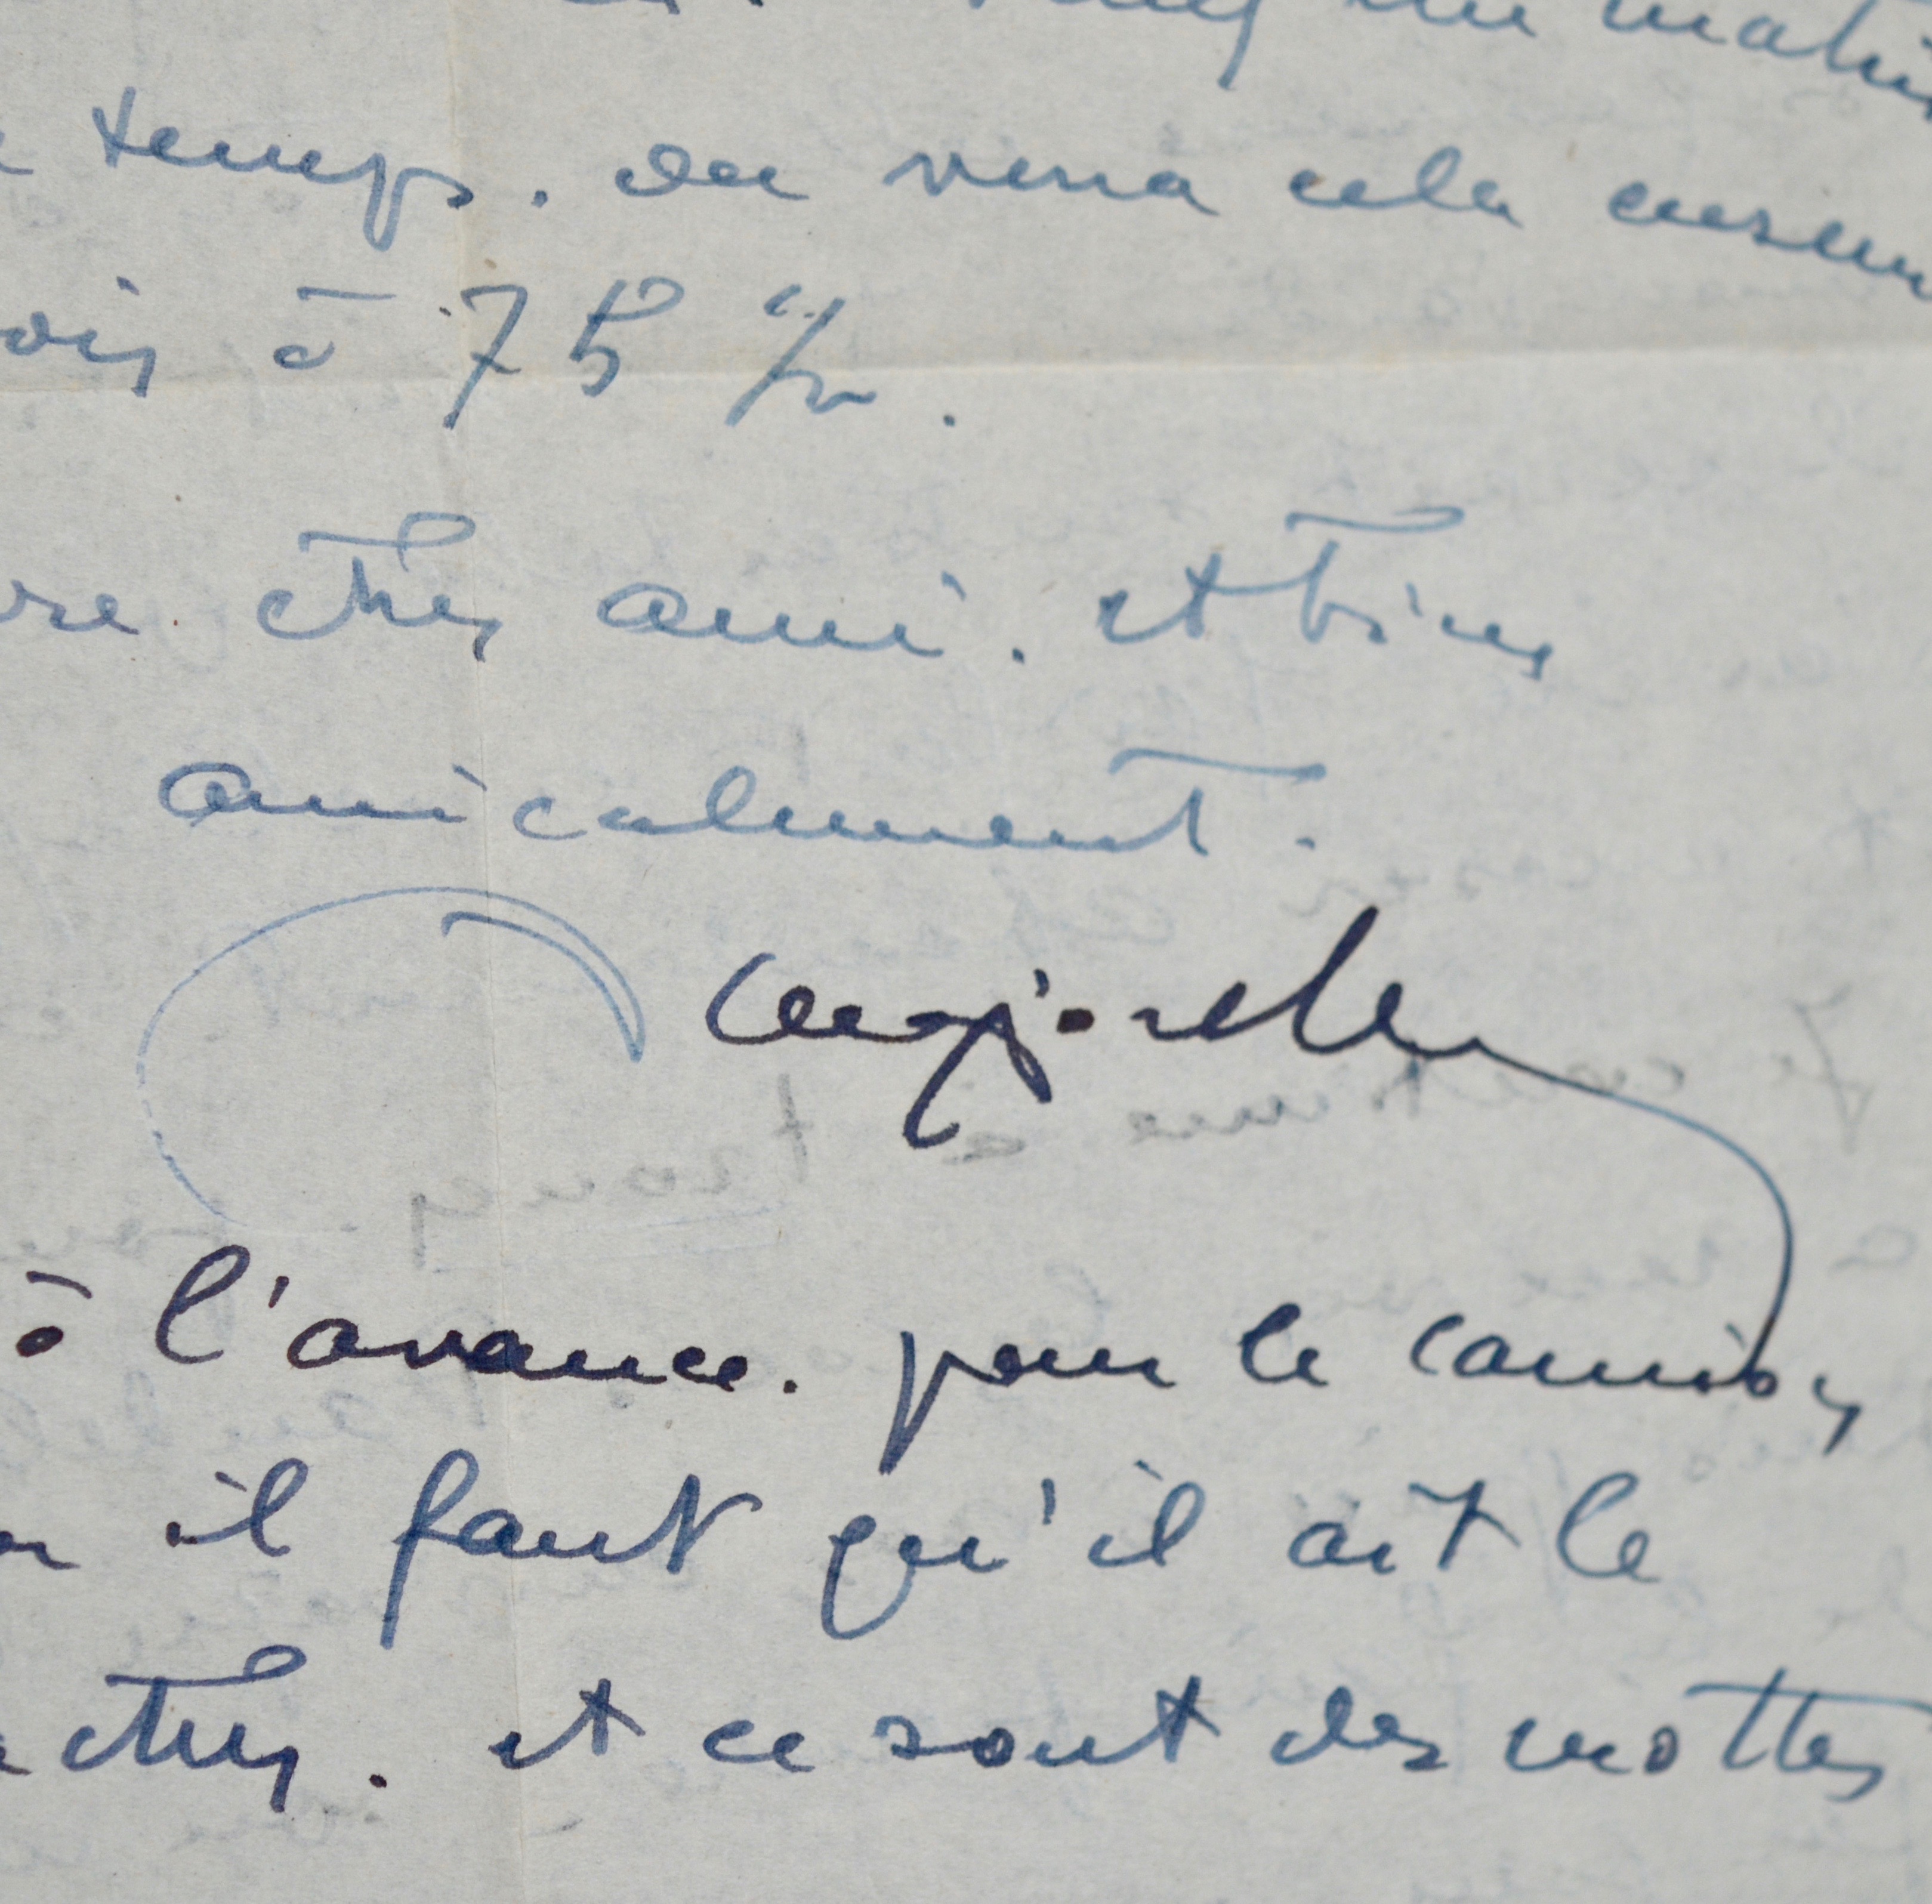 un matin
temps. on verra cela ensem
ois à 75 %.
cher ami. et bien
amicalement.
Majorelle
à l'avance. pour le camion
il faut qu'il ait le
et ce sont des mottes